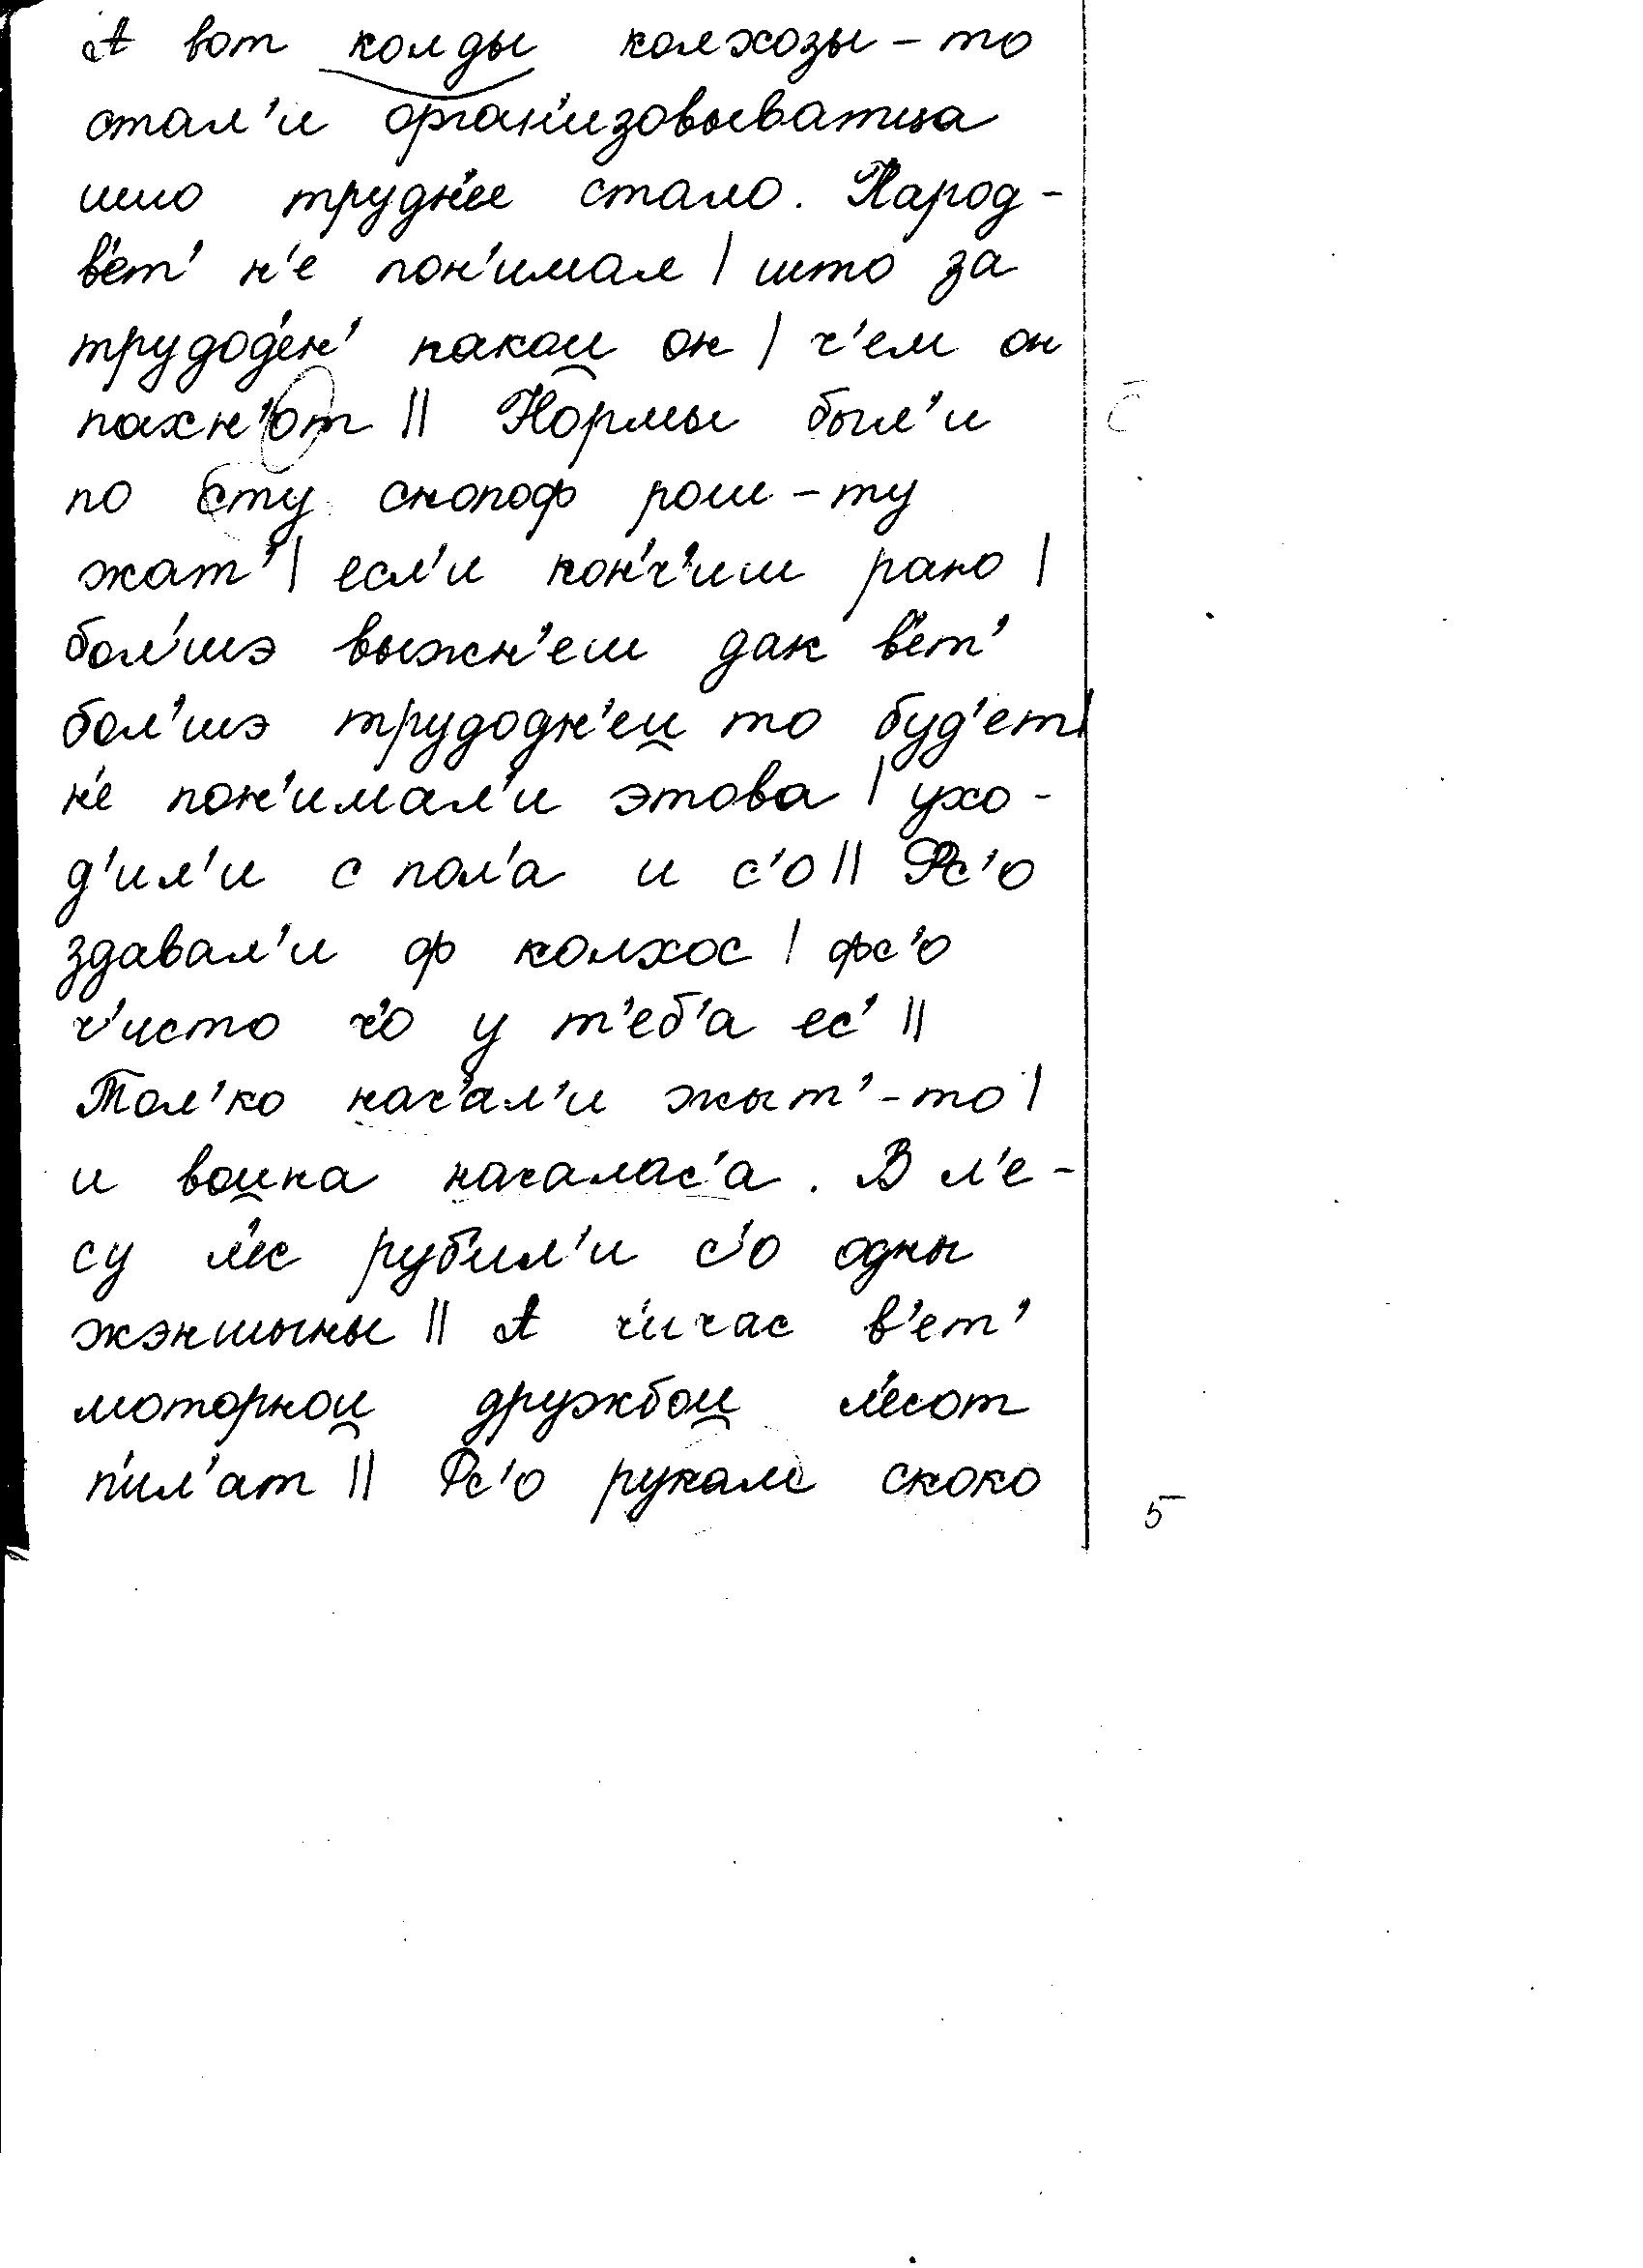 А вот колды колхозы-то
стал'и орган'изовыватца
ишо трудн'ее стало. Народ-
в'ет' н'е пон'имал | што за
трудод'ен' какои̯ он | ч'ем он
пахн'от || Нормы был'и
по сту снопоф рош-ту
жат' | есл'и кон'ч'иш рано |
бол'шэ выжн'еш дак в'ет'
бол'шэ трудодн'еи̯ то буд'ет |
н'е пон'имал'и этова | ухо-
д'ил'и с пол'а и с'о || Фс'о
здавал'и ф колхос | фс'о
ч'исто ч'о у т'еб'а ес' ||
Тол'ко нач'ал'и жыт'-то |
и вои̯на началас'а. В л'е-
су л'ес руб'ил'и с'о одны
жэншыны || А ч'ичас в'ет'
моторнои̯ дружбои̯ л'есот
п'ил'ат || Фс'о рукам скоко
5